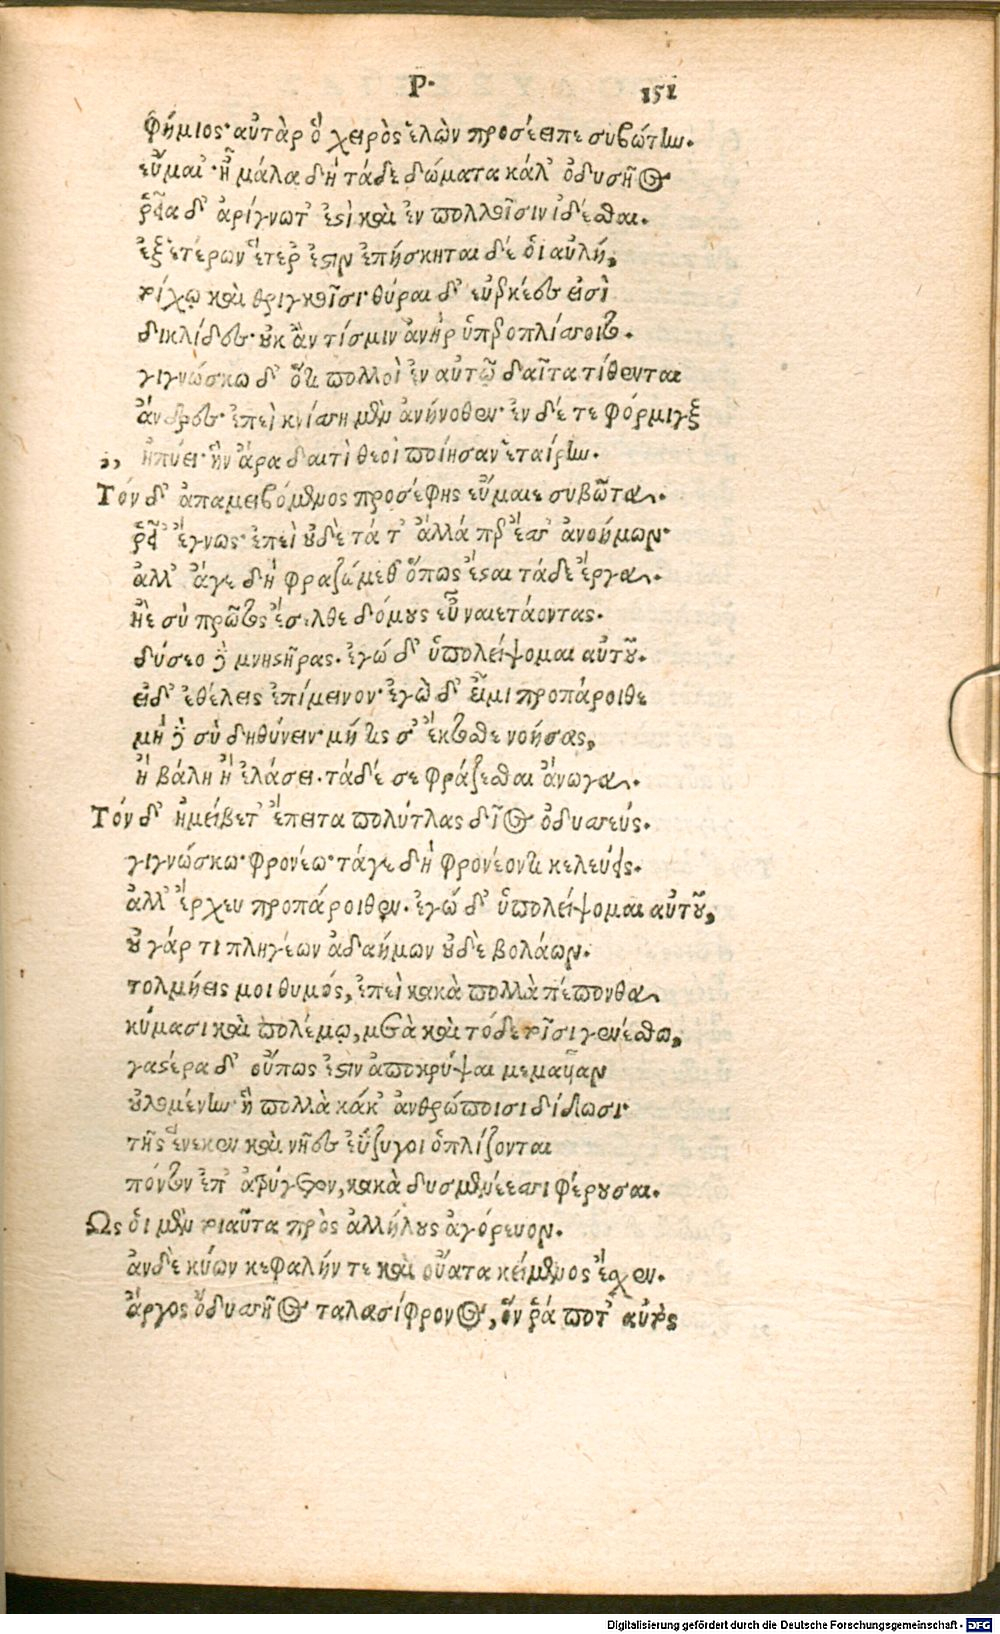 Ρ· 151
φήμιος· αὐτὰρ ὁ χειρὸς ἑλὼν προσέειπε συβώτην.
εὔμαι'· ἦ μάλα δὴ τάδε δώματα κάλ' ὀδυσῆος
ῥεῖα δ' ἀρίγνωτ' ἐστὶ καὶ ἐν πολλοῖσιν ἰδέσθαι.
ἐξ ἑτέρων ἕτερ' ἐστιν· ἐπήσκηται δέ οἱ αὐλή,
τοίχῳ καὶ θριγκοῖσι· θύραι δ' εὐερκέες εἰσὶ
δικλίδες· οὐκ ἄν τίς μιν ἀνὴρ ὑπεροπλίσσοιτο.
γιγνώσκω δ' ὅτι πολλοὶ ἐν αὐτῷ δαῖτα τίθενται
ἄνδρες· ἐπεὶ κνίσση μὲν ἀνήνοθεν· ἐν δέ τε φόρμιγξ
,, ἠπύει· ἣν ἄρα δαιτὶ θεοὶ ποίησαν ἑταίρην.
Τόν δ' ἀπαμειβόμενος προσέφης εὔμαιε συβῶτα.
ῥεῖ' ἔγνως· ἐπεὶ οὐδὲ τά τ' ἄλλά περ ἔσσ' ἀνοήμων·
ἀλλ' ἄγε δὴ φραζώμεθ' ὅπως ἔσται τάδε ἔργα.
ἠὲ σὺ πρῶτος ἔσελθε δόμους εὖ ναιετάοντας.
δύσεο δὲ μνηστῆρας. ἐγώ δ' ὑπολείψομαι αὐτοῦ.
εἰ δ' ἐθέλεις ἐπίμεινον· ἐγὼ δ' εἶμι προπάροιθε
μὴ δὲ σὺ δηθύνειν· μή τις σ' ἔκτοσθε νοήσας,
ἢ βάλη ἢ ἐλάσει. τάδέ σε φράζεσθαι ἄνωγα.
Τόν δ' ἠμείβετ' ἔπειτα πολύτλας δῖος ὀδυσσεύς.
γιγνώσκω· φρονέω· τάγε δὴ φρονέοντι κελεύεις.
ἀλλ' ἔρχευ προπάροιθεν. ἐγώ δ' ὑπολείψομαι αὐτοῦ,
οὐ γάρ τι πληγέων ἀδαήμων οὐδὲ βολάων.
τολμήεις μοι θυμός, ἐπεὶ κακὰ πολλὰ πέπονθα
κύμασι καὶ πολέμῳ, μετὰ καὶ τόδε τοῖσι γενέσθω,
γαστέρα δ' οὔπως ἐστιν ἀποκρύψαι μεμαυῖαν
οὐλομένην· ἣ πολλὰ κάκ' ἀνθρώποισι δίδωσι·
τῆς ἕνεκεν καὶ νῆες ἐΰζυγοι ὁπλίζονται
πόντον ἐπ' ἀτρύγετον, κακὰ δυσμενέεσσι φέρουσαι.
Ως ὁι μὲν τοιαῦτα πρὸς ἀλλήλους ἀγόρευον.
ἀνδὲ κύων κεφαλήν τε καὶ οὔατα κείμενος ἔσχεν.
ἄργος ὀδυσσῆος ταλασίφρονος, ὅν ῥά ποτ' αὐτὸς
Digitalisierung gefördert durch die Deutsche Forschungsgemeinschaft - DFG